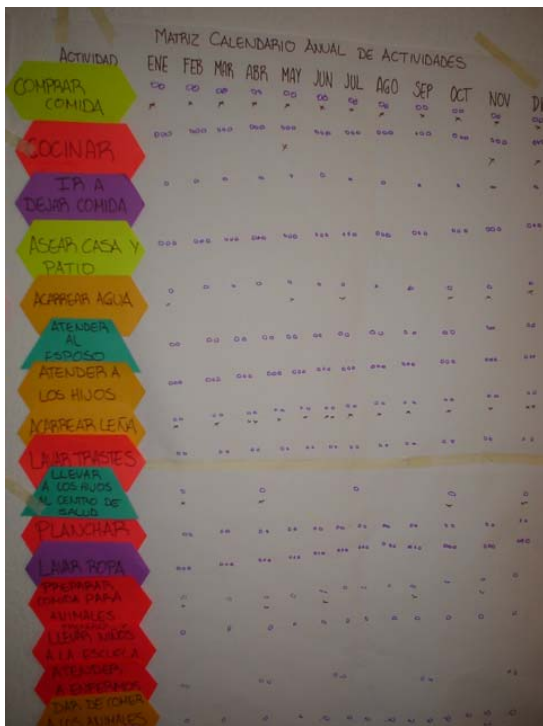 MATRIZ CALENDARIO ANUAL DE ACTIVIDADES
ACTIVIDAD ENE FEB MAR ABR MAY JUN JUL AGO SEP OCT NOV DI
COMPRAR
COMIDA
COCINAR
IR A
DEJAR COMIDA
ASEAR CASA Y
PATIO
ACARREAR AGUA
ATENDER
AL
ESPOSO
ATENDER A
LOS HIJOS
ACARREAR LEÑA
LAVAR TRASTES
LLEVAR
A LOS HIJOS
AL CENTRO DE
SALUD
PLANCHAR
LAVAR ROPA
PREPARAR
COMIDA PARA
ANIMALES
LLEVAR NIÑOS
A LA ESCUELA
ATENDER
A ENFERMOS
DAR DE COMER
A LOS ANIMALES